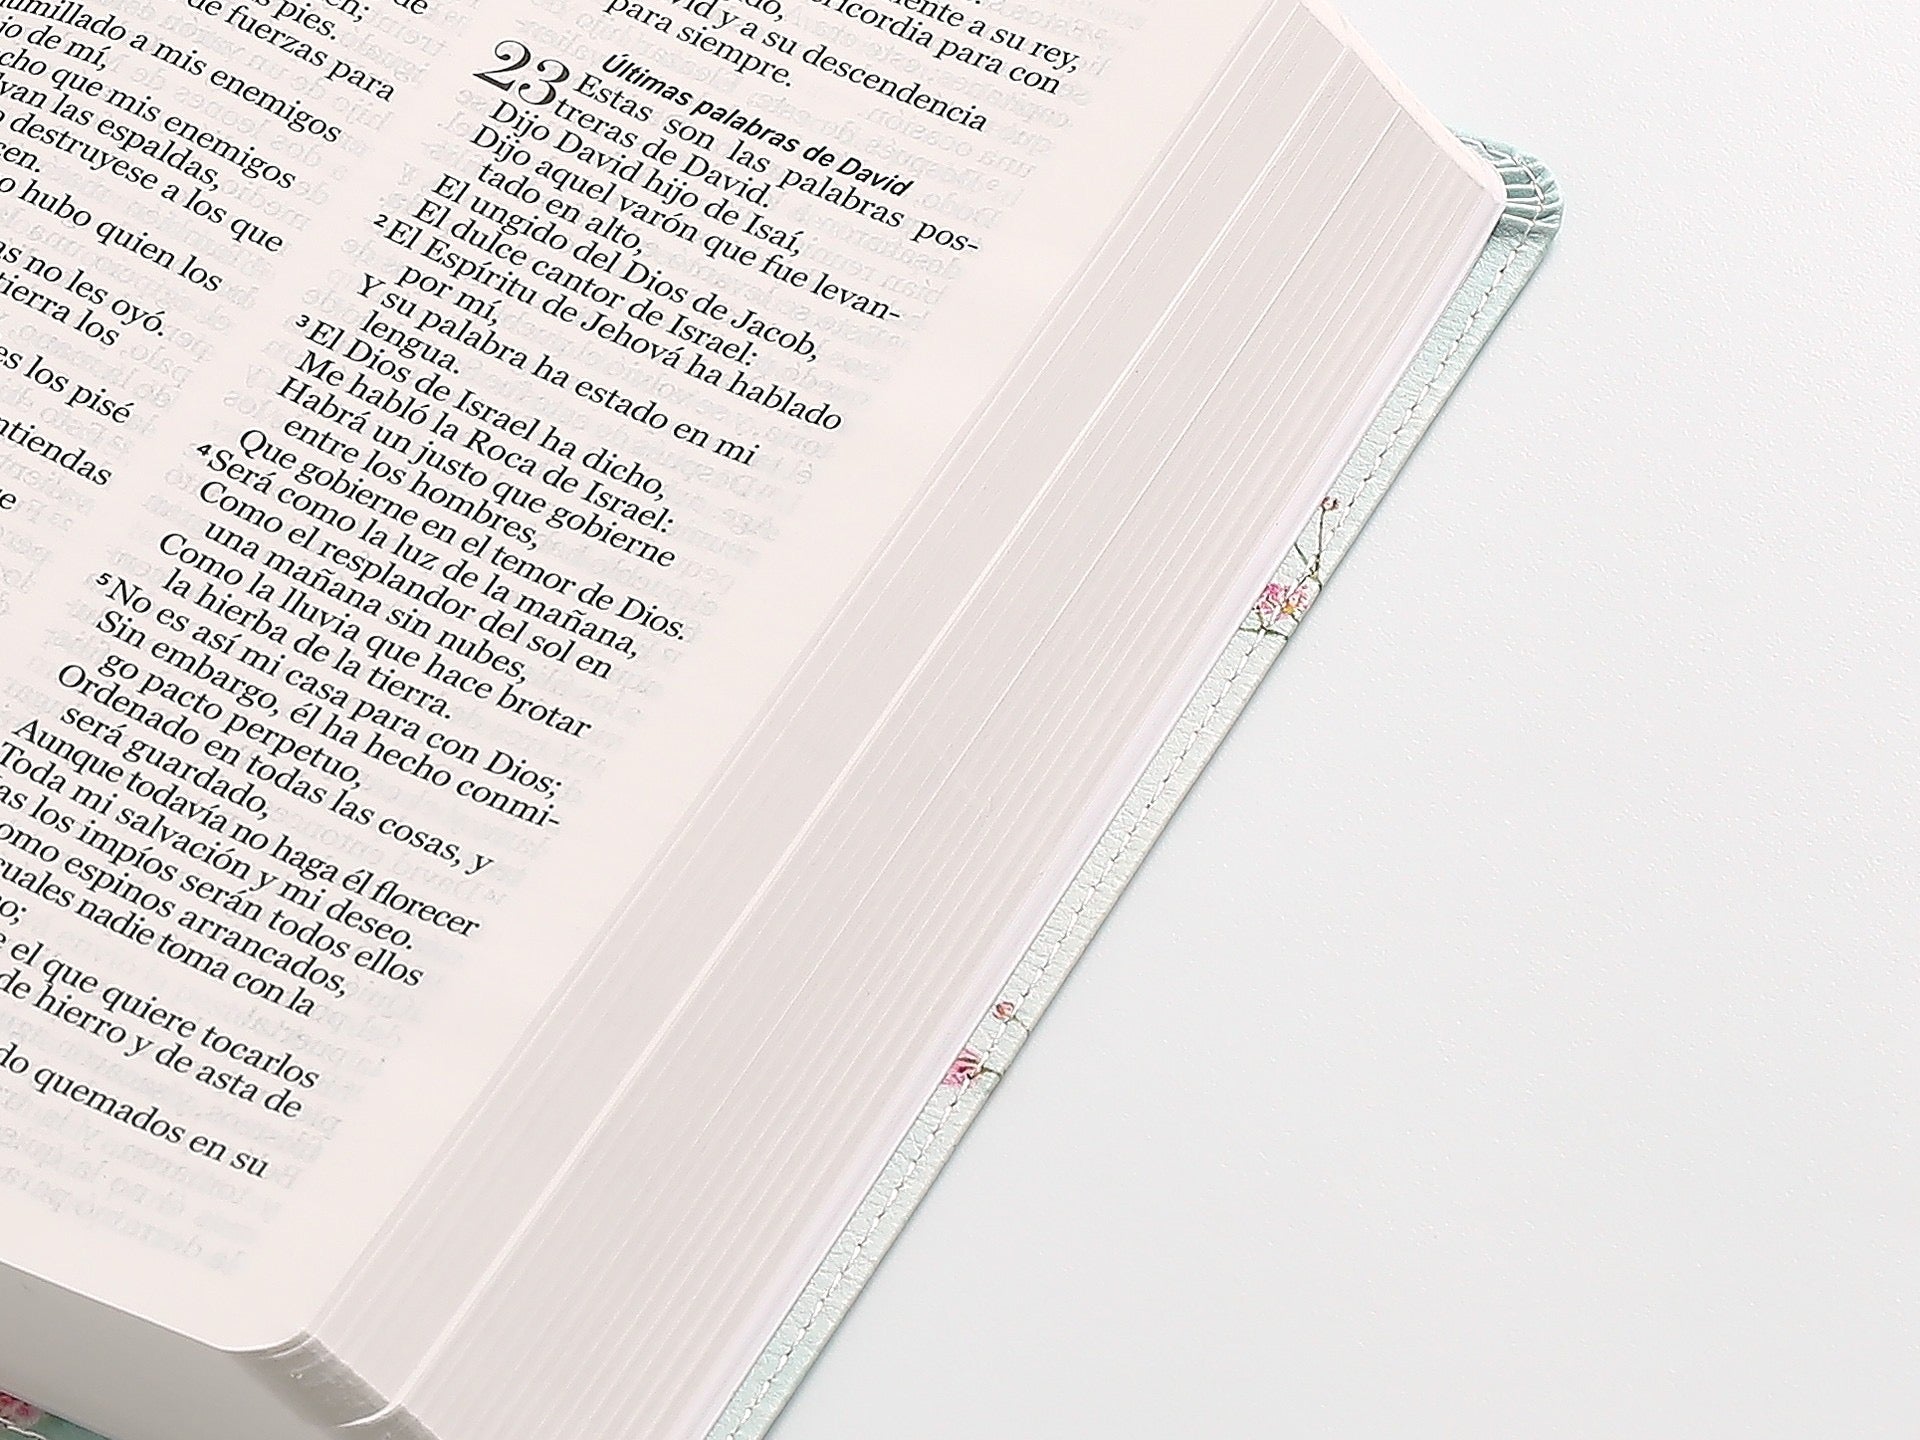 de
pies.
en;
de fuerzas para
humillado a mis enemigos
jo de mí,
cho que mis enemigos
van las espaldas,
destruyese a los que
cen.
o hubo quien los
as no les oyó.
tierra los
es los pisé
ntiendas
mente a su rey,
ericordia para con
vid y a su descendencia
para siempre.
Últimas palabras de David
23 Estas son las palabras pos-
treras de David.
Dijo David hijo de Isaí,
Dijo aquel varón que fue levan-
tado en alto,
El ungido del Dios de Jacob,
El dulce cantor de Israel:
2 El Espíritu de Jehová ha hablado
por mí,
Y su palabra ha estado en mi
lengua.
3 El Dios de Israel ha dicho,
Me habló la Roca de Israel:
Habrá un justo que gobierne
entre los hombres,
Que gobierne en el temor de Dios.
4 Será como la luz de la mañana,
Como el resplandor del sol en
una mañana sin nubes,
Como la lluvia que hace brotar
la hierba de la tierra.
5 No es así mi casa para con Dios;
Sin embargo, él ha hecho conmi-
go pacto perpetuo,
Ordenado en todas las cosas, y
será guardado,
Aunque todavía no haga él florecer
Toda mi salvación y mi deseo.
as los impíos serán todos ellos
omo espinos arrancados,
cuales nadie toma con la
no;
e el que quiere tocarlos
de hierro y de asta de
do quemados en su